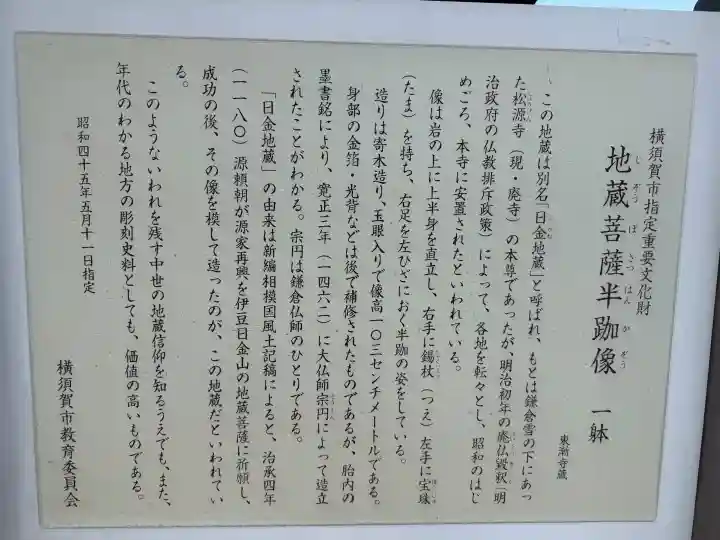 横須賀市指定重要文化財
地蔵菩薩半跏像 一躰
じぞうぼさつはんかぞう
東漸寺蔵
この地蔵は別名「日金地蔵」と呼ばれ、もとは鎌倉雪の下にあっ
た松源寺（現・廃寺）の本尊であったが、明治初年の廃仏毀釈（明
治政府の仏教排斥政策）によって、各地を転々とし、昭和のはじ
めごろ、本寺に安置されたといわれている。
像は岩の上に上半身を直立し、右手に錫杖（つえ）左手に宝珠
（たま）を持ち、右足を左ひざにおく半跏の姿をしている。
造りは寄木造り、玉眼入りで像高一〇三センチメートルである。
身部の金箔・光背などは後で補修されたものであるが、胎内の
墨書銘により、寛正三年（一四六二）に大仏師宗円によって造立
されたことがわかる。宗円は鎌倉仏師のひとりである。
「日金地蔵」の由来は新編相模国風土記稿によると、治承四年
（一一八〇）源頼朝が源家再興を伊豆日金山の地蔵菩薩に祈願し、
成功の後、その像を模して造ったのが、この地蔵だといわれてい
る。
このようないわれを残す中世の地蔵信仰を知るうえでも、また、
年代のわかる地方の彫刻史料としても、価値の高いものである。
昭和四十五年五月十一日指定
横須賀市教育委員会